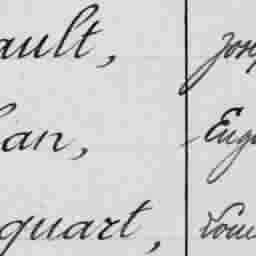 ault, Jose
lan, Euge
quart, Loui